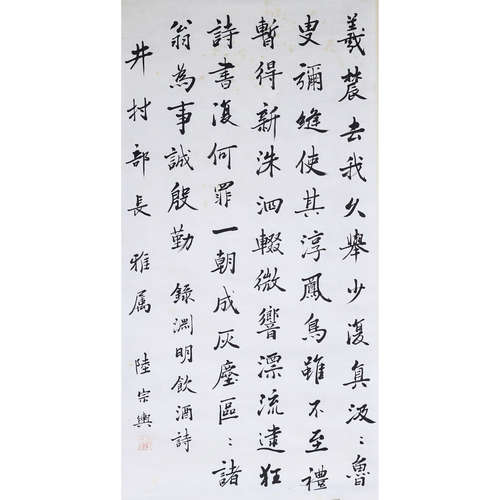 羲農去我久舉少復真汲〻魯
叟彌縫使其淳鳳鳥雖不至禮
暫得新洙泗輟微響漂流逮狂
詩書復何罪一朝成灰塵區〻諸
翁為事誠殷勤 錄淵明飲酒詩
井村部長雅属 陸宗輿